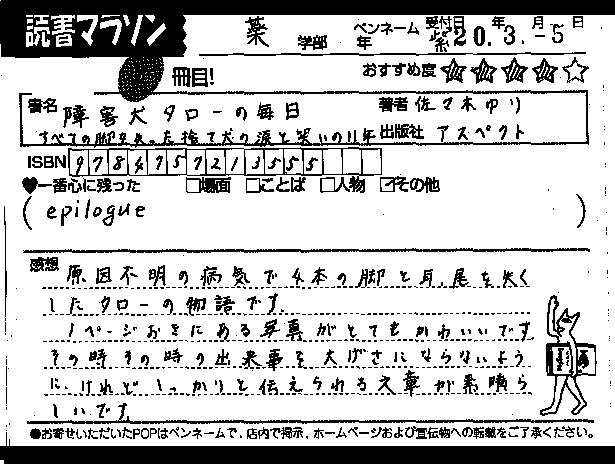 読書マラソン
薬 学部 年 ペンネーム 紫 受付日 20年 3月 -5日
冊目! おすすめ度 ★★★★☆
書名 障害犬タローの毎日 著者 佐々木ゆり
すべての脚を失った捨て犬の涙と笑いの11年 出版社 アスペクト
ISBN 9784757213555
♥一番心に残った □場面 □ことば □人物 ☑その他
(epilogue)
感想 原因不明の病気で4本の脚と耳、尾を失く
したタローの物語です。
1ページおきにある写真がとてもかわいいです
その時その時の出来事を大げさにならないよう
に、けれどしっかりと伝えられる文章が素晴ら
しいです。
●お寄せいただいたPOPはペンネームで、店内で掲示、ホームページおよび宣伝物への転載をご了承ください。